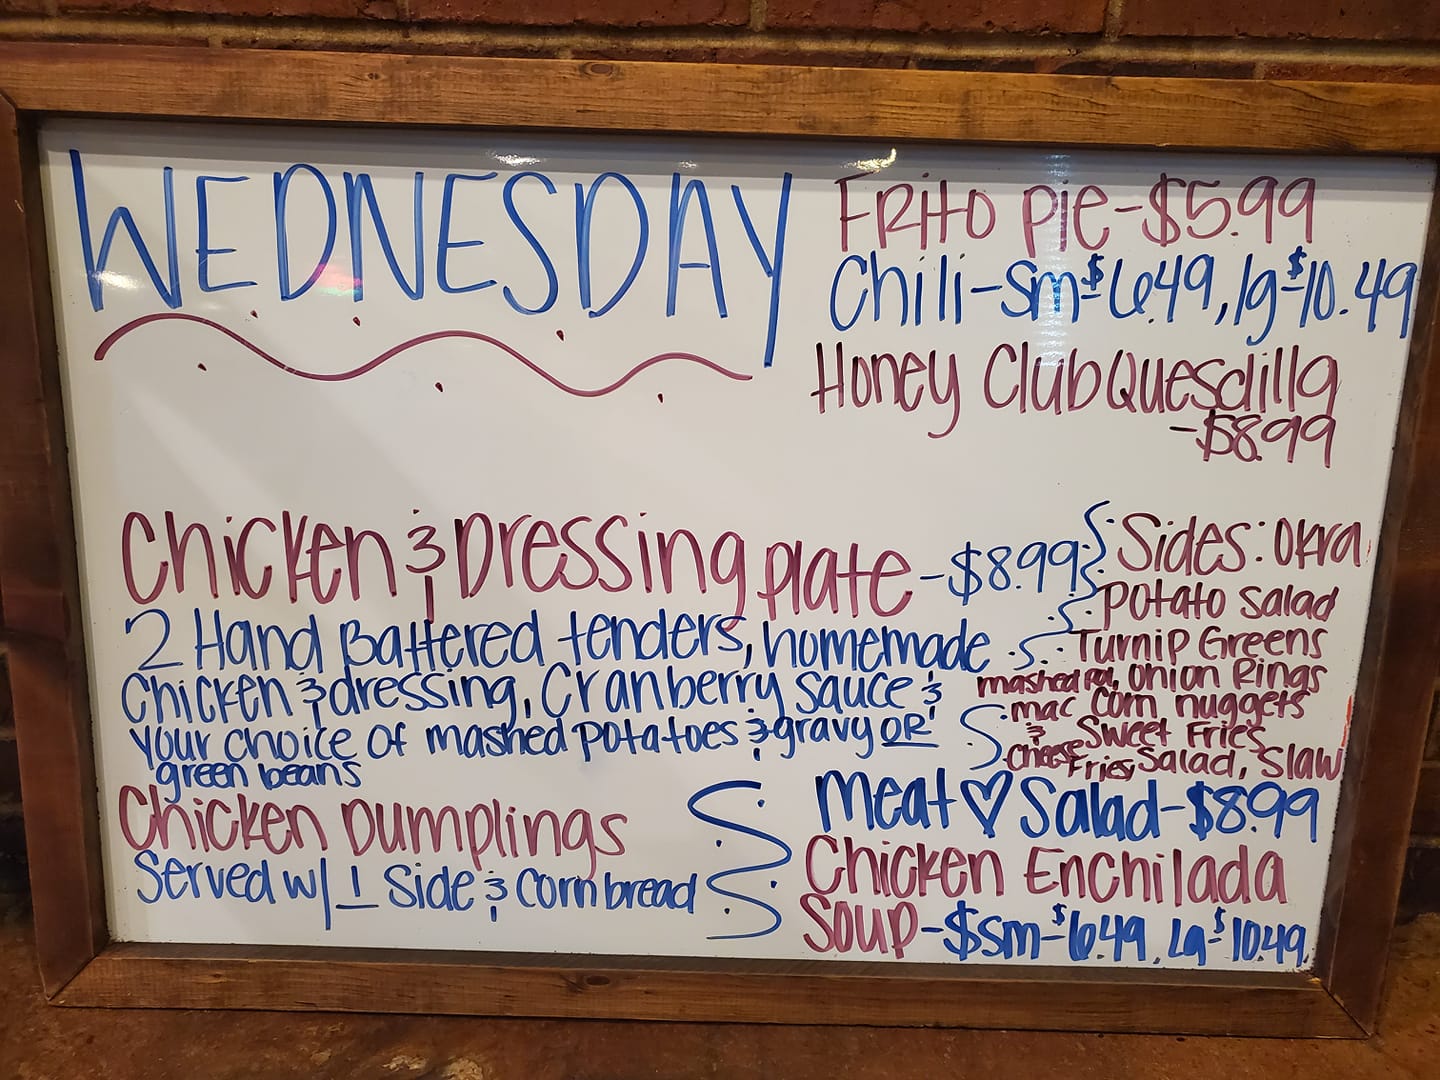 WEDNESDAY
Frito pie-$5.99
Chili-sm $6.49, lg $10.49
Honey Club Quesdilla
-$8.99
Chicken & Dressing plate -$8.99
2 Hand Battered tenders, homemade
Chicken & dressing, Cranberry sauce &
your choice of mashed potatoes & gravy OR
green beans
Sides: Okra
Potato Salad
Turnip Greens
mashed po, Onion Rings
mac Corn nuggets
& Sweet Fries
Cheese Fries, Salad, Slaw
Chicken Dumplings
Served w/ 1 Side & Cornbread
Meat ♡ Salad-$8.99
Chicken Enchilada
Soup-$sm-$6.49, Lg-$10.49